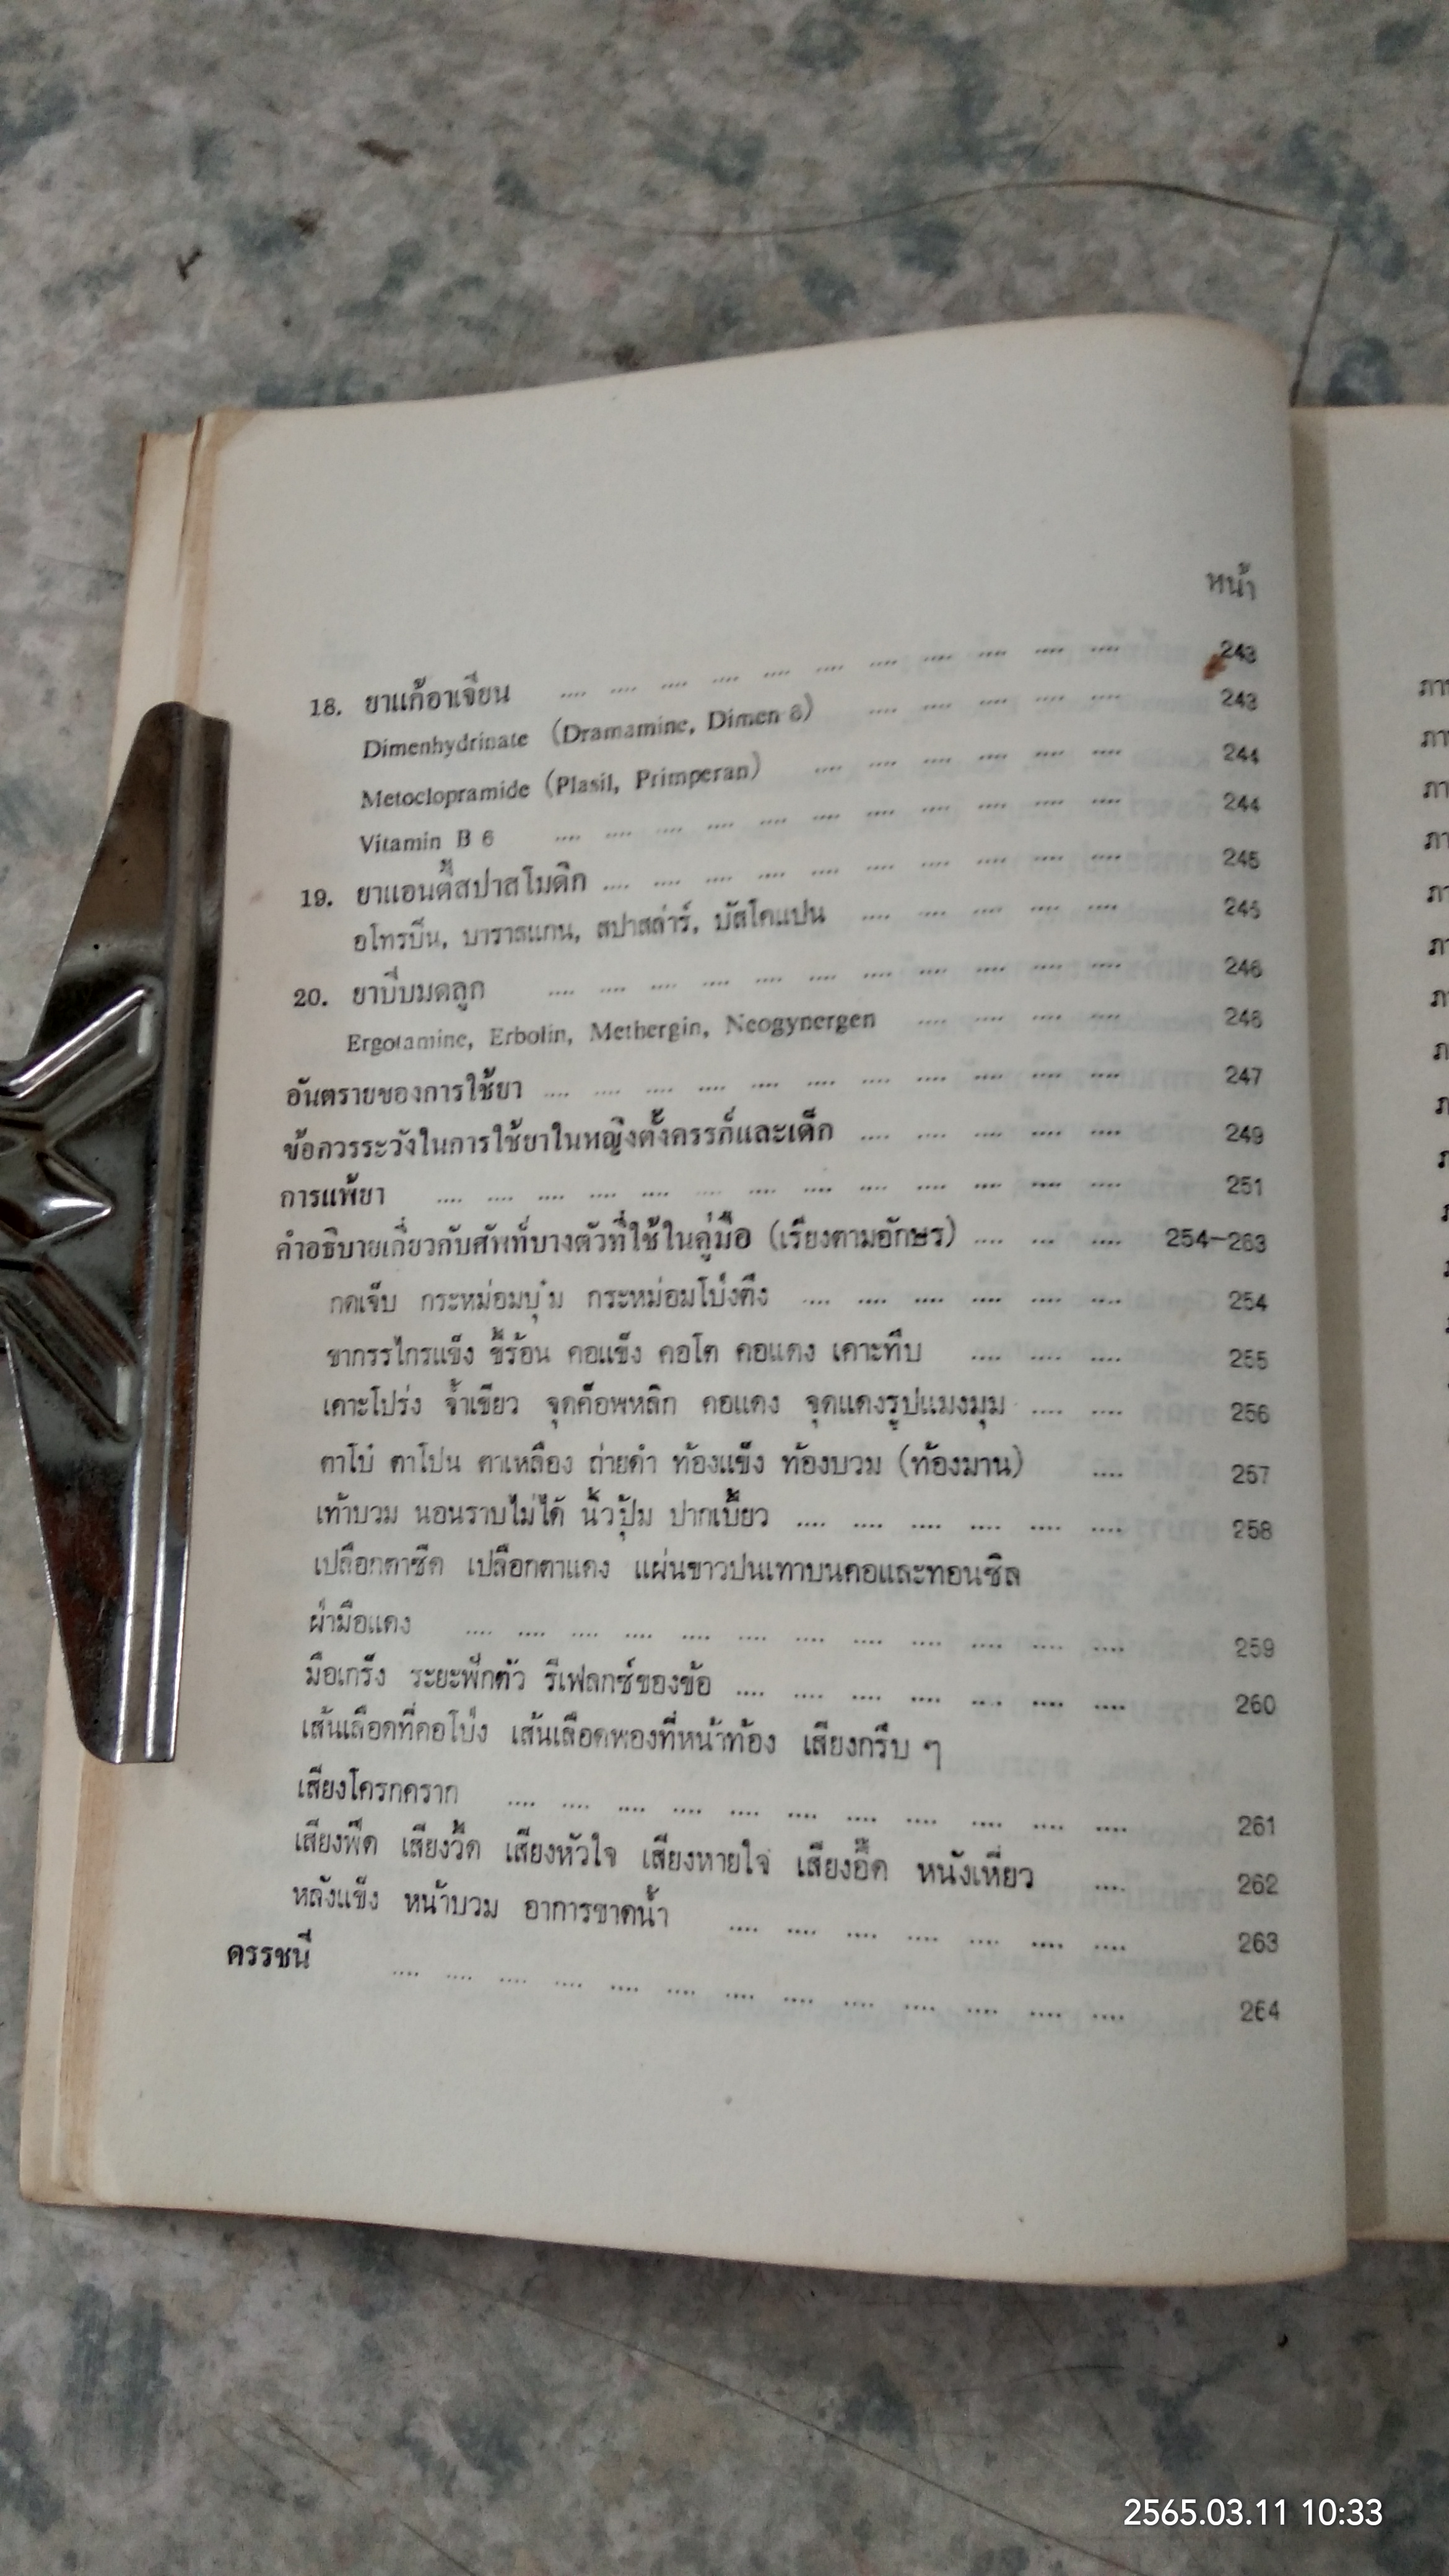 หน้า
18. ยาแก้อาเจียน .... .... .... .... .... .... .... .... .... .... .... 243
Dimenhydrinate (Dramamine, Dimen 8) .... .... .... .... .... 243
Metoclopramide (Plasil, Primperan) .... .... .... .... .... .... 244
Vitamin B 6 .... .... .... .... .... .... .... .... .... .... .... 244
19. ยาแอนตี้สปาสโมดิก .... .... .... .... .... .... .... .... .... .... 245
อโทรปีน, บาราลแกน, สปาสล่าร์, บัสโคแปน .... .... .... .... .... 245
20. ยาบีบมดลูก .... .... .... .... .... .... .... .... .... .... .... 246
Ergotamine, Erbolin, Methergin, Neogynergen .... .... .... .... 246
อันตรายของการใช้ยา .... .... .... .... .... .... .... .... .... .... .... 247
ข้อควรระวังในการใช้ยาในหญิงตั้งครรภ์และเด็ก .... .... .... .... .... 249
การแพ้ยา .... .... .... .... .... .... .... .... .... .... .... .... .... 251
คำอธิบายเกี่ยวกับศัพท์บางตัวที่ใช้ในคู่มือ (เรียงตามอักษร) .... .... .... 254–263
กดเจ็บ กระหม่อมบุ๋ม กระหม่อมโป่งตึง .... .... .... .... .... .... 254
ขากรรไกรแข็ง ขี้ร้อน คอแข็ง คอโต คอแดง เคาะทึบ .... .... .... 255
เคาะโปร่ง จ้ำเขียว จุดค็อพหลิก คอแดง จุดแดงรูปแมงมุม .... .... 256
ตาโบ๋ ตาโปน ตาเหลือง ถ่ายดำ ท้องแข็ง ท้องบวม (ท้องมาน) .... 257
เท้าบวม นอนราบไม่ได้ นิ้วปุ้ม ปากเบี้ยว .... .... .... .... .... .... 258
เปลือกตาซีด เปลือกตาแดง แผ่นขาวปนเทาบนคอและทอนซิล
ฝ่ามือแดง .... .... .... .... .... .... .... .... .... .... .... .... 259
มือเกร็ง ระยะฟักตัว รีเฟลกซ์ของข้อ .... .... .... .... .... .... .... 260
เส้นเลือดที่คอโป่ง เส้นเลือดพองที่หน้าท้อง เสียงกรึบ ๆ
เสียงโครกคราก .... .... .... .... .... .... .... .... .... .... .... 261
เสียงฟืด เสียงวี้ด เสียงหัวใจ เสียงหายใจ เสียงอื๊ด หนังเหี่ยว .... 262
หลังแข็ง หน้าบวม อาการขาดน้ำ .... .... .... .... .... .... .... 263
ดรรชนี .... .... .... .... .... .... .... .... .... .... .... .... .... .... 264
2565.03.11 10:33